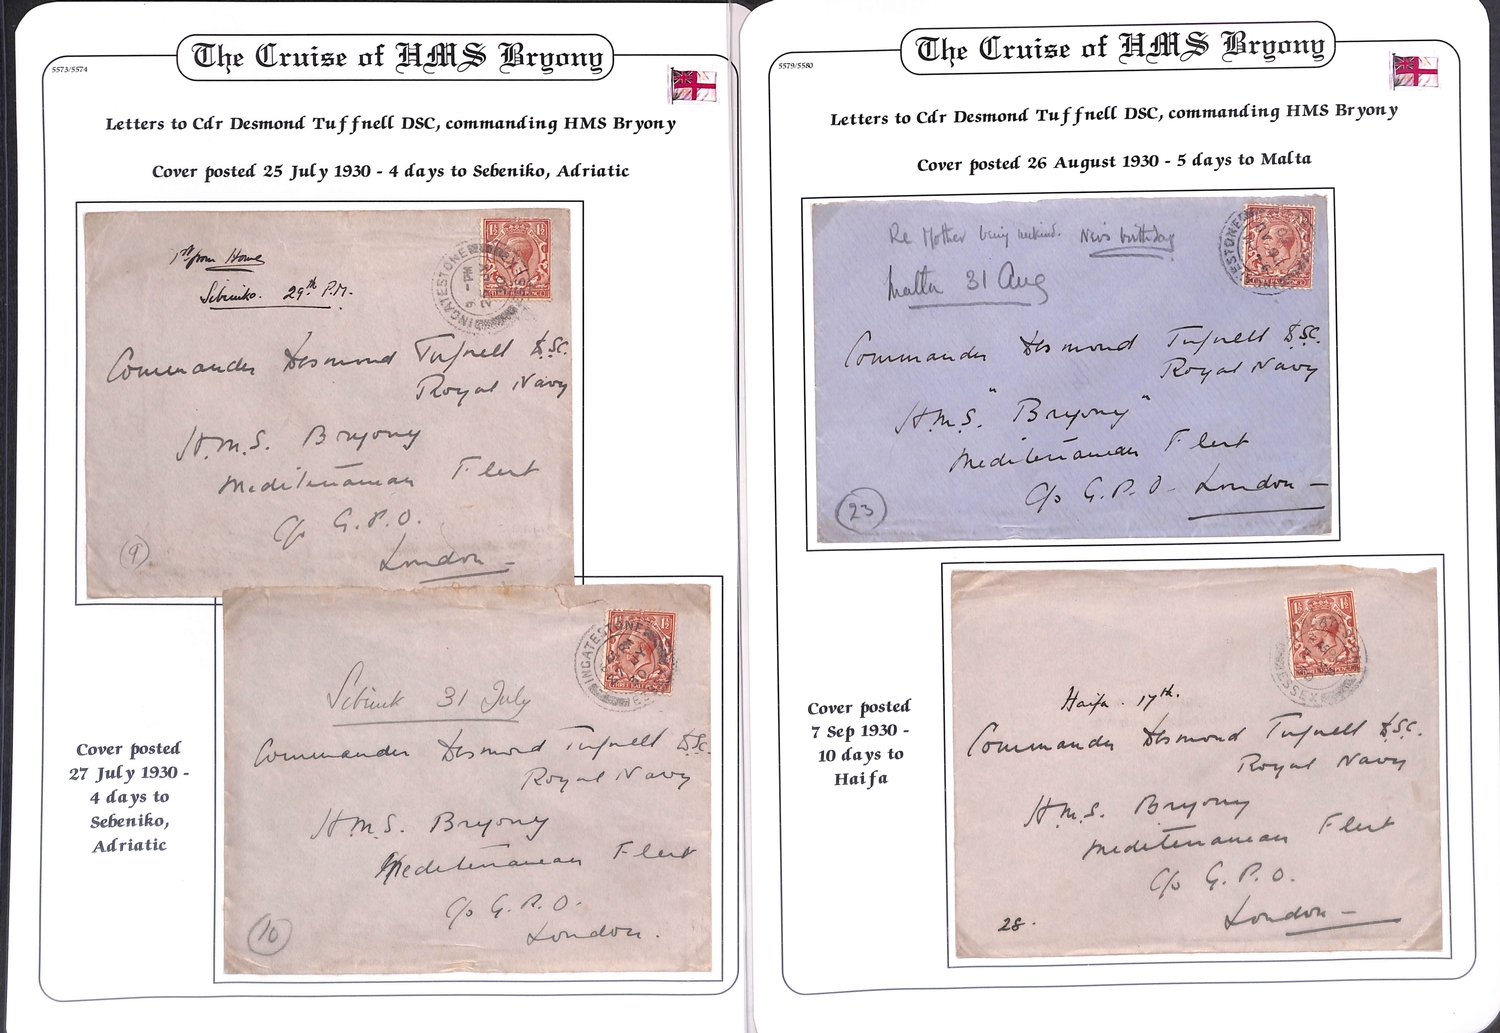 The Cruise of HMS Bryony
5573/5574
Letters to Cdr Desmond Tuffnell DSC, commanding HMS Bryony
Cover posted 25 July 1930 - 4 days to Sebeniko, Adriatic
1st from Home
Sebenico. 29th P.M.
INGATESTONE
Commander Desmond Tufnell D.S.C.
Royal Navy
H.M.S. Bryony
Mediterranean Fleet
c/o G.P.O.
London
9
Cover posted
27 July 1930 -
4 days to
Sebeniko,
Adriatic
INGATESTONE
31 July
Commander Desmond Tufnell D.S.C.
Royal Navy
H.M.S. Bryony
Mediterranean Fleet
c/o G.P.O.
London.
10
The Cruise of HMS Bryony
5579/5580
Letters to Cdr Desmond Tuffnell DSC, commanding HMS Bryony
Cover posted 26 August 1930 - 5 days to Malta
Re Mother being unkind. Nev's birthday
Malta 31 Aug
Commander Desmond Tufnell D.S.C.
Royal Navy
H.M.S. "Bryony"
Mediterranean Fleet
c/o G.P.O. London
23
Cover posted
7 Sep 1930 -
10 days to
Haifa
ESSEX
Haifa. 17th.
Commander Desmond Tufnell D.S.C.
Royal Navy
H.M.S. Bryony
Mediterranean Fleet
c/o G.P.O.
London
28.